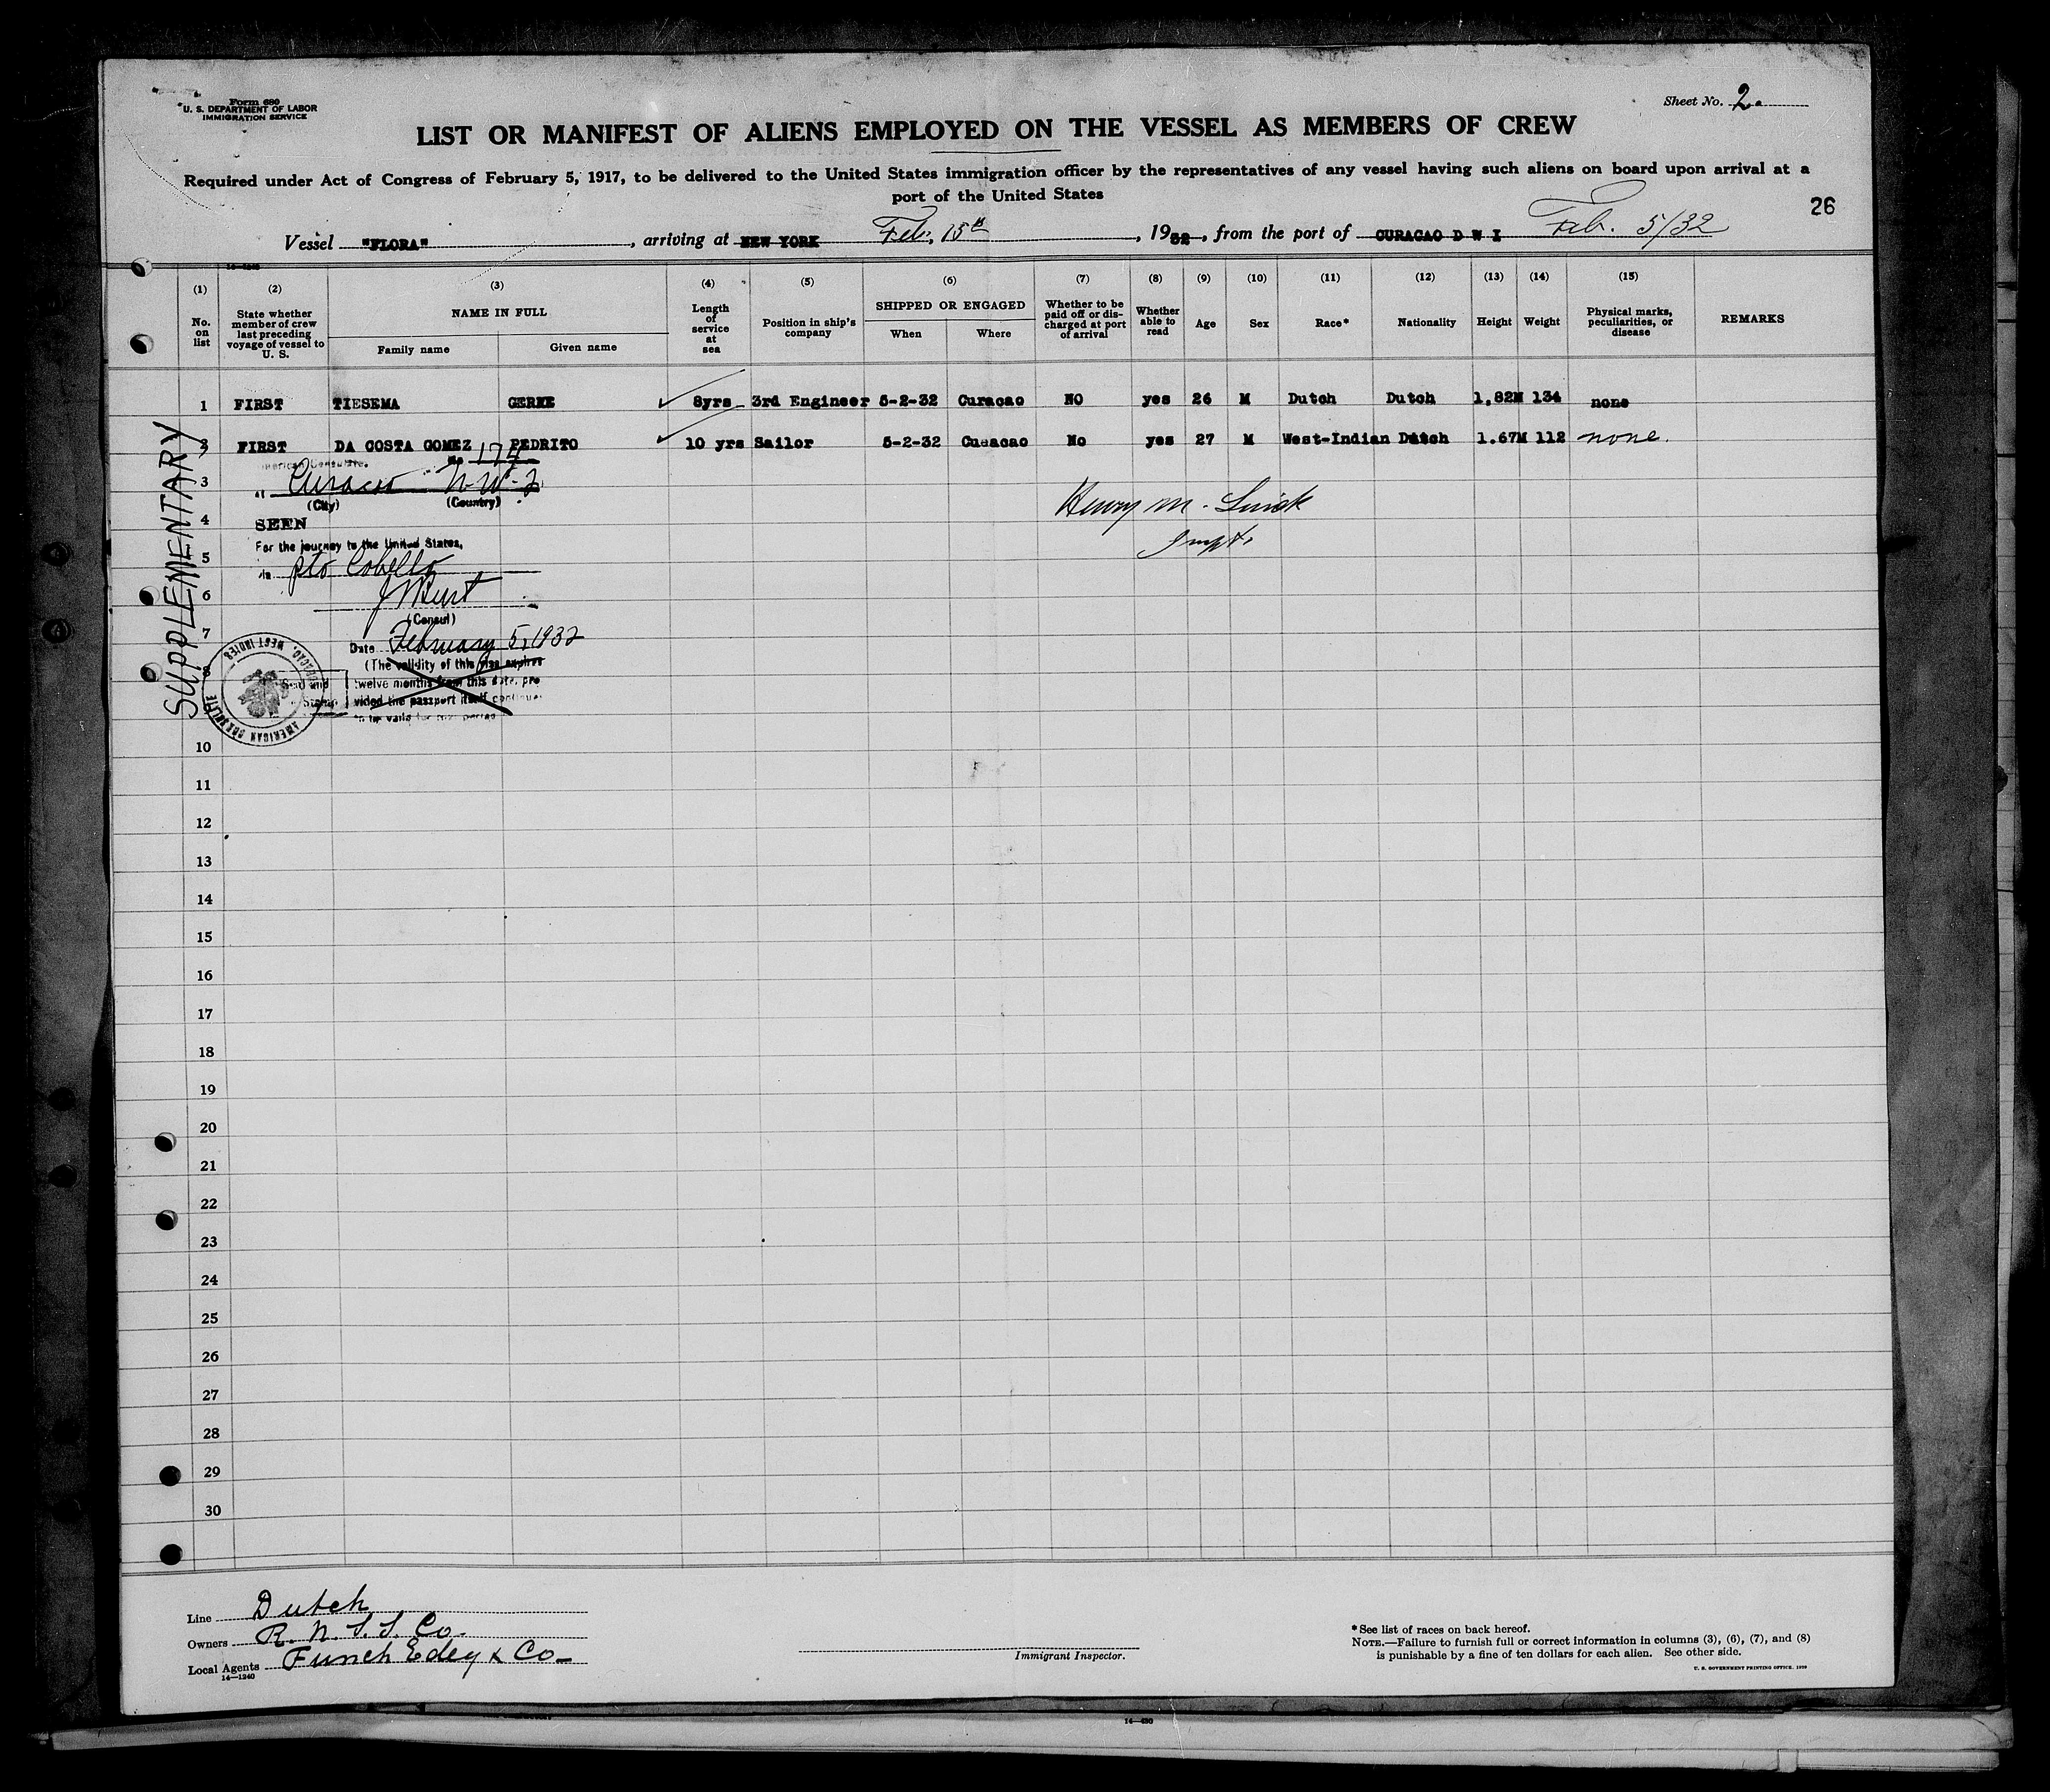 Form 680
U. S. DEPARTMENT OF LABOR
IMMIGRATION SERVICE
Sheet No. 2.
LIST OR MANIFEST OF ALIENS EMPLOYED ON THE VESSEL AS MEMBERS OF CREW
Required under Act of Congress of February 5, 1917, to be delivered to the United States immigration officer by the representatives of any vessel having such aliens on board upon arrival at a
port of the United States
26
Vessel "FLORA", arriving at NEW YORK Feb. 15th, 1932, from the port of CURACAO D W I Feb. 5/32
14—1240
(1) (2) (3) (4) (5) (6) (7) (8) (9) (10) (11) (12) (13) (14) (15)
No. on list
State whether member of crew last preceding voyage of vessel to U. S.
NAME IN FULL
Family name
Given name
Length of service at sea
Position in ship's company
SHIPPED OR ENGAGED
When
Where
Whether to be paid off or discharged at port of arrival
Whether able to read
Age
Sex
Race*
Nationality
Height
Weight
Physical marks, peculiarities, or disease
REMARKS
1 FIRST TIESEMA GERKE 8yrs 3rd Engineer 5-2-32 Curacao NO yes 26 M Dutch Dutch 1.82M 134 none
2 FIRST DA COSTA GOMEZ PEDRITO 10 yrs Sailor 5-2-32 Cuaacao No yes 27 M West-Indian Dutch 1.67M 112 none.
SUPPLEMENTARY
American Consulate.
No 174
3
at Curacao N.W.I
(City) (Country)
Henry M.
4
SEEN
Inspt.
5
For the journey to the United States,
via Pto Cobello
6
(Consul)
7
Date February 5, 1932
(The validity of this visa expires
8
twelve months from this date, pro
vided the passport itself continues
to be valid for that period
Seal and
Stamp
AMERICAN CONSULATE CURACAO, WEST INDIES
10
11
12
13
14
15
16
17
18
19
20
21
22
23
24
25
26
27
28
29
30
Line Dutch
Owners R. N. S. S. Co.
Local Agents Funch Edey & Co-
14—1240
Immigrant Inspector.
*See list of races on back hereof.
NOTE.—Failure to furnish full or correct information in columns (3), (6), (7), and (8)
is punishable by a fine of ten dollars for each alien. See other side.
U. S. GOVERNMENT PRINTING OFFICE. 1929
14—430